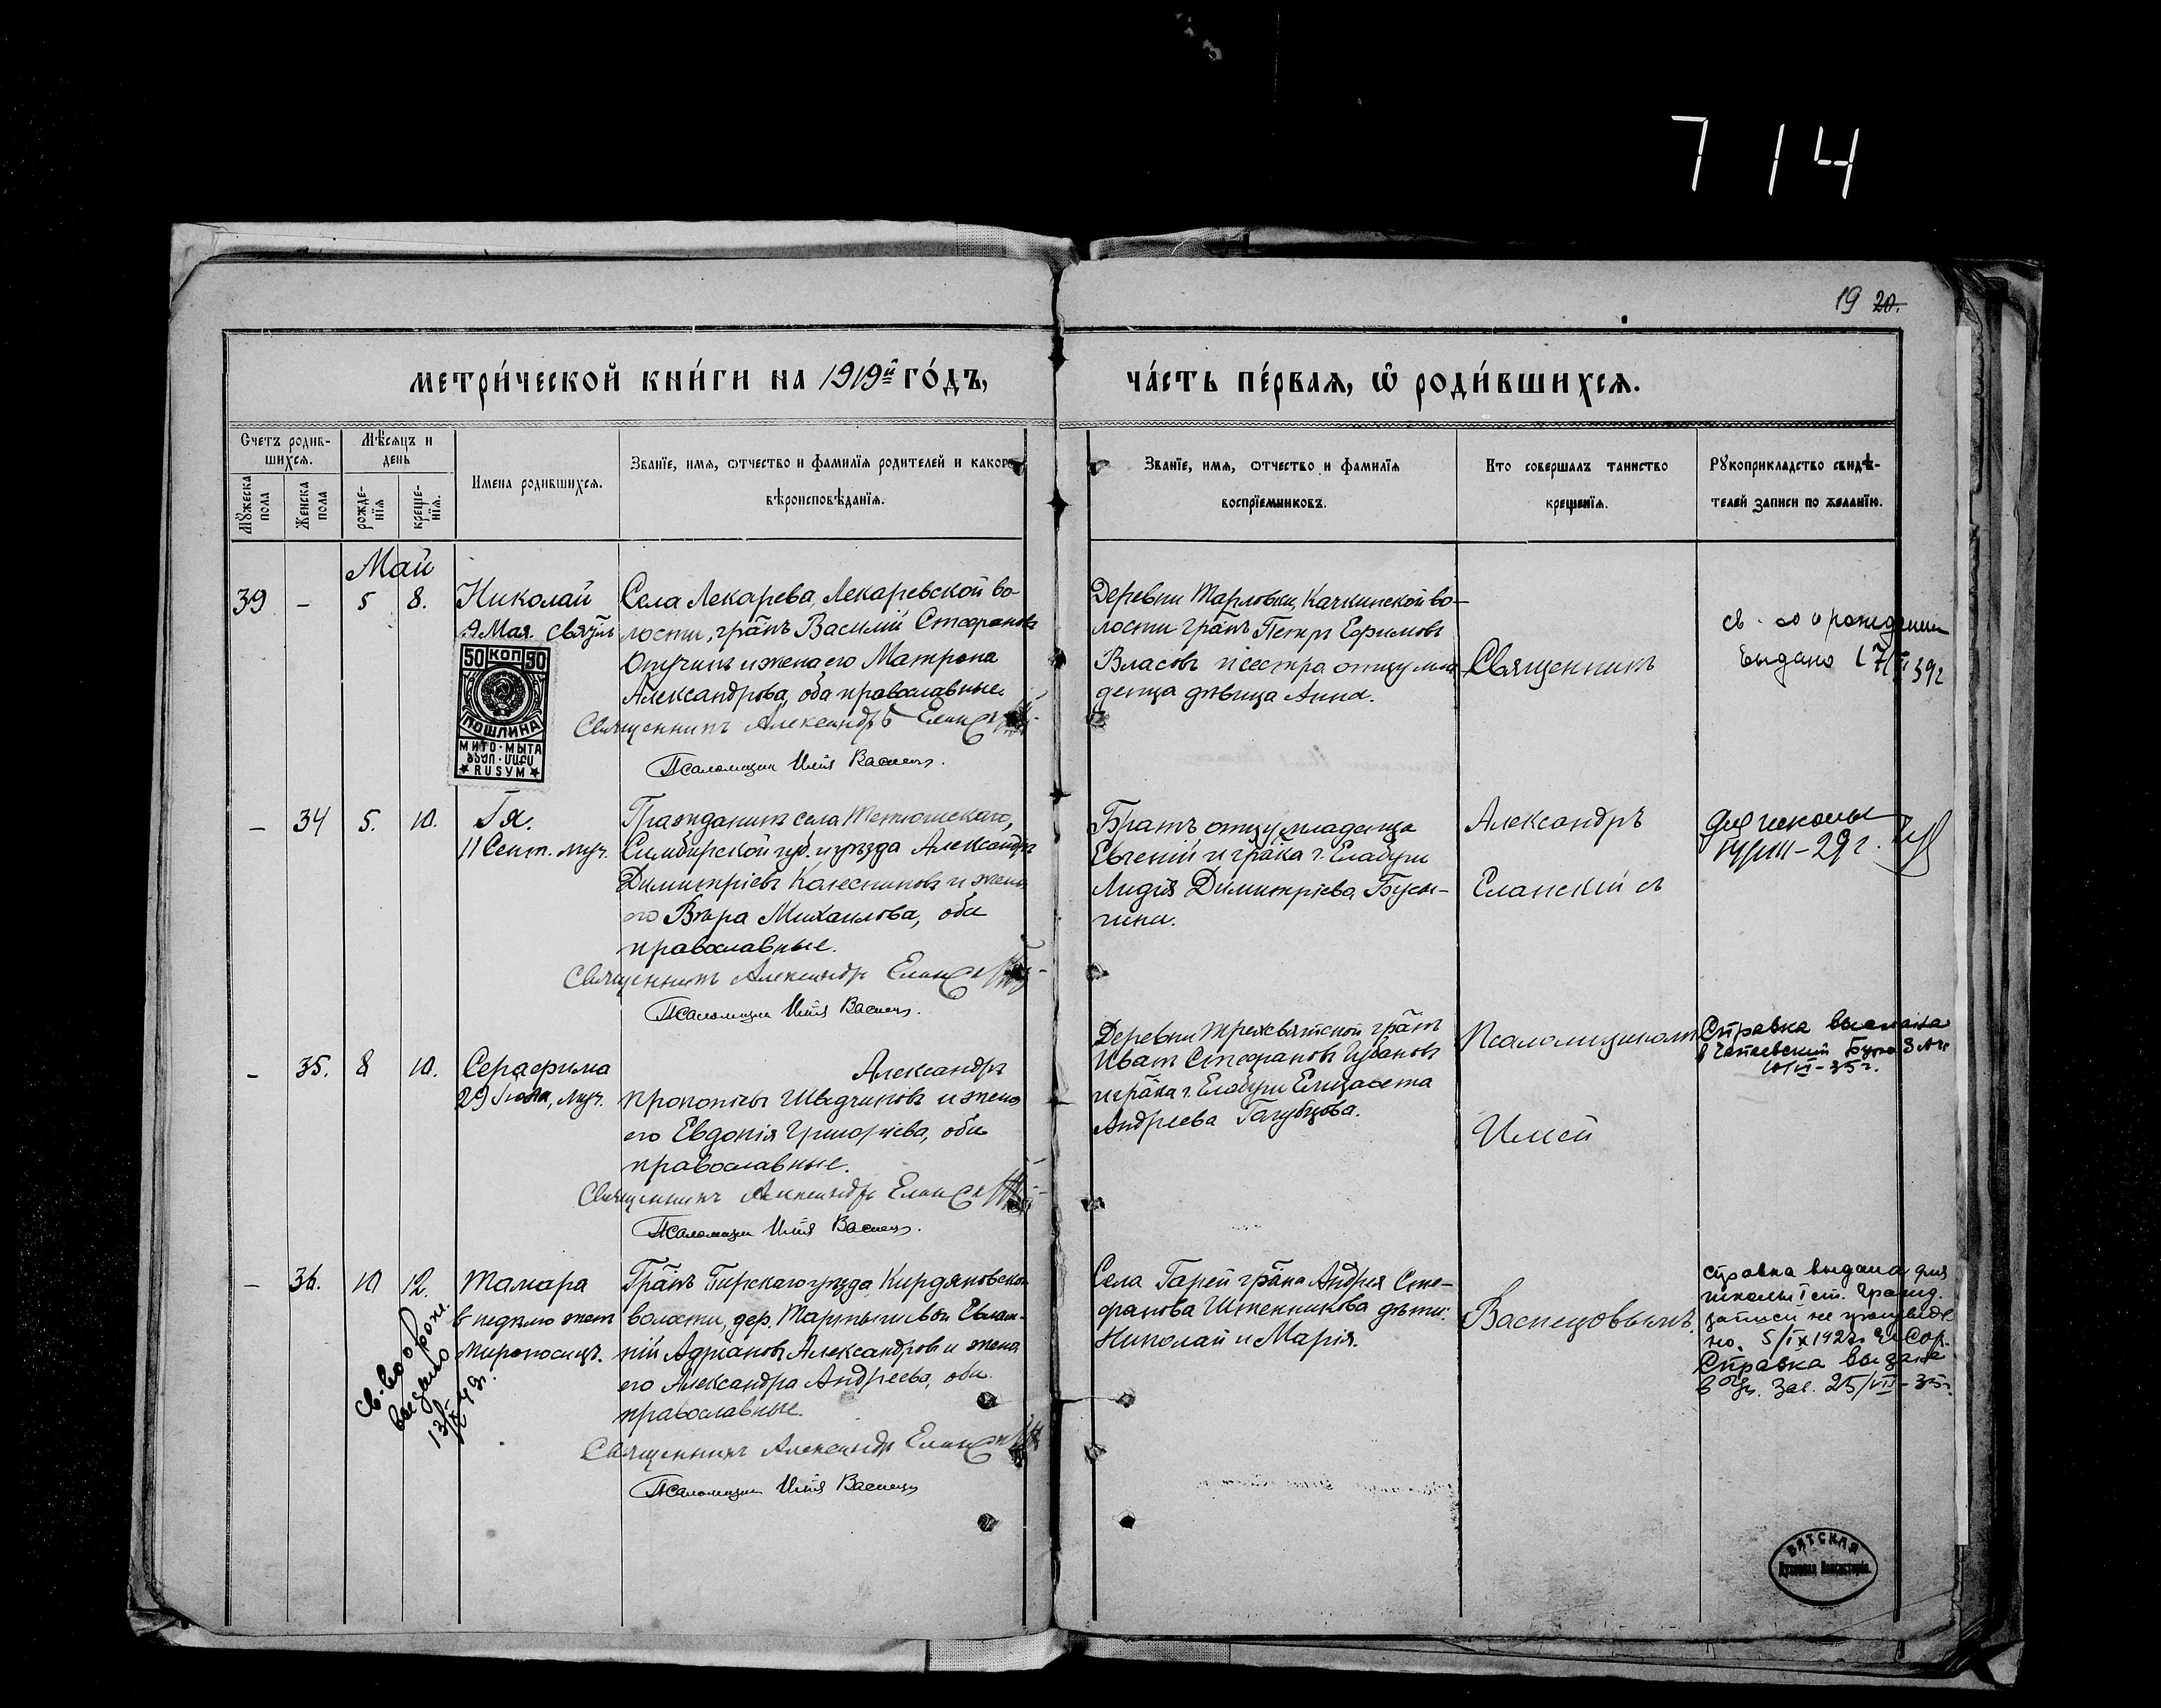 714
19 20.
МЕТРИ́ЧЕСКОЙ КНИ́ГИ НА 1919й ГО́ДЪ,
ЧА́СТЬ ПЕ́РВАѦ, Ѡ РОДИ́ВШИХСѦ.
Счетъ родив-
шихсѧ.
Мѣсѧцъ и
день
Мꙋжеска
пола
Женска
пола
рожде-
нїѧ
креще-
нїѧ.
Имена родившихсѧ.
Званїе, имѧ, ѡтчество и фамилїѧ родителей и какого
вѣроисповѣданїѧ.
Званїе, имѧ, ѡтчество и фамилїѧ
воспрїемниковъ.
Кто совершалъ таинство
крещенїѧ.
Рꙋкоприкладство свидѣ-
телей записи по желанїю.
Май
39 - 5 8. Николай
9 Мая. Святит.
Села Лекарева, Лекаревской во-
лости, гр-нъ Василій Стефановъ
и жена его Матрона
Александрова, оба православные.
Священникъ Александръ Еланскій
Псаломщик Илія Васнецовъ.
50 КОП 50
ПОШЛИНА
МИТО·МЫТА
RUSYM
Деревни Тарловки, Качкинской во-
лости гр-нъ Петръ Ефимовъ
Власовъ и сестра отцу мла-
денца дѣвица Анна.
Священникъ
св-во о рождении
выдано
- 34 5. 10. Ія.
11 Сент. муч.
Гражданинъ села Тетюшскаго,
Симбирской губ. и уѣзда Александръ
Димитріевъ Колесниковъ и жена
его Вѣра Михаилова, оба
православные.
Священникъ Александръ Еланскій
Псаломщик Илія Васнецовъ.
Братъ отцу младенца
Евгеній и гр-нка г. Елабуги
Лидія Димитріева Бусы-
гина.
Александръ
Еланскій съ
Для школы
29 г.
- 35. 8 10. Серафима
29 Іюля, муч.
Александръ
Прокопьевъ Шведчиковъ и жена
его Евдокія Григоріева, оба
православные.
Священникъ Александръ Еланскій
Псаломщик Илія Васнецовъ.
Деревни Трехсвятской гр-нъ
Иванъ Стефановъ Чубановъ
и гр-нка г. Елабуги Елизавета
Андреева Голубцова.
Псаломщикомъ
Иліей
Справка выслана
в Чапаевский Бюро ЗАГС
- 36. 10 12. Тамара
в недѣлю жен
мироносицъ.
Св-во о рожд.
выдано
Гр-нъ Бирскаго уѣзда, Кирдяновской
волости, дер. Мартыновой Евлам-
пій Адріановъ Александровъ и жена
его Александра Андреева, оба
православные.
Священникъ Александръ Еланскій
Псаломщик Илія Васнецовъ
Села Гарей гр-на Андрея Сте-
фанова Штенникова дѣти:
Николай и Марія.
Васнецовымъ.
справка выдана для
школы I ст. Гражд.
записи не произведе-
но. 5/IX 1927г.
Справка выдана
25/VII-35г.
ВЯТСКАЯ
Духовная Консисторія.